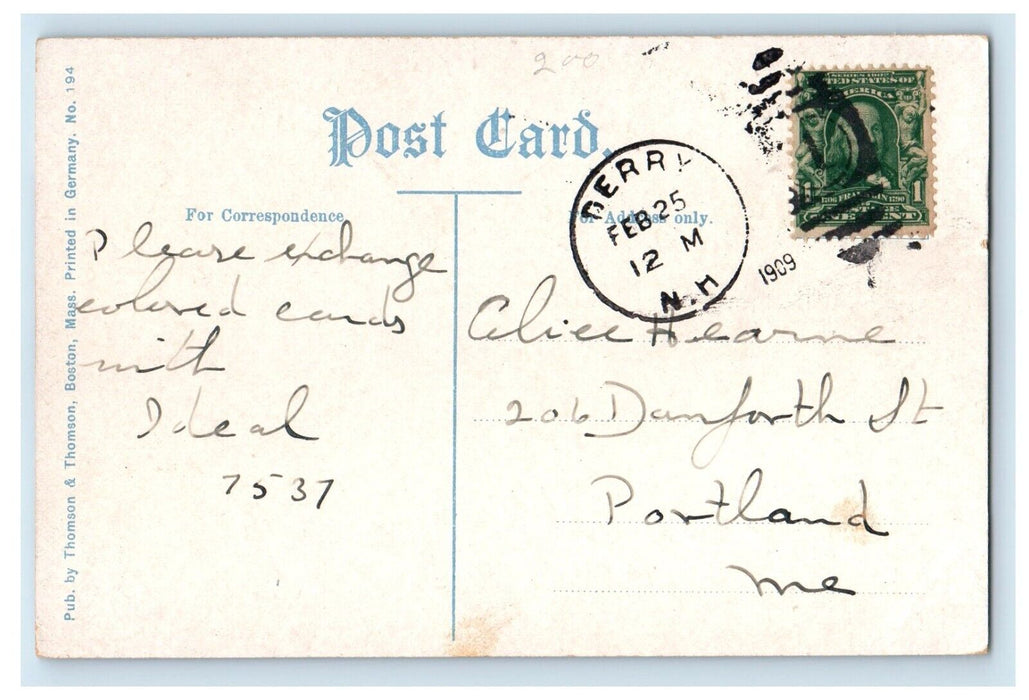 200
Post Card.
SERIES 1902
UNITED STATES OF
AMERICA
1706 FRANKLIN 1790
1 1
ONE CENT
DERRY
FEB 25
12 M
N.H
1909
For Correspondence
For Address only.
Please exchange
colored cards
with
Ideal
7537
Alice Hearne
206 Danforth St
Portland
Me
Pub. by Thomson & Thomson, Boston, Mass. Printed in Germany. No. 194